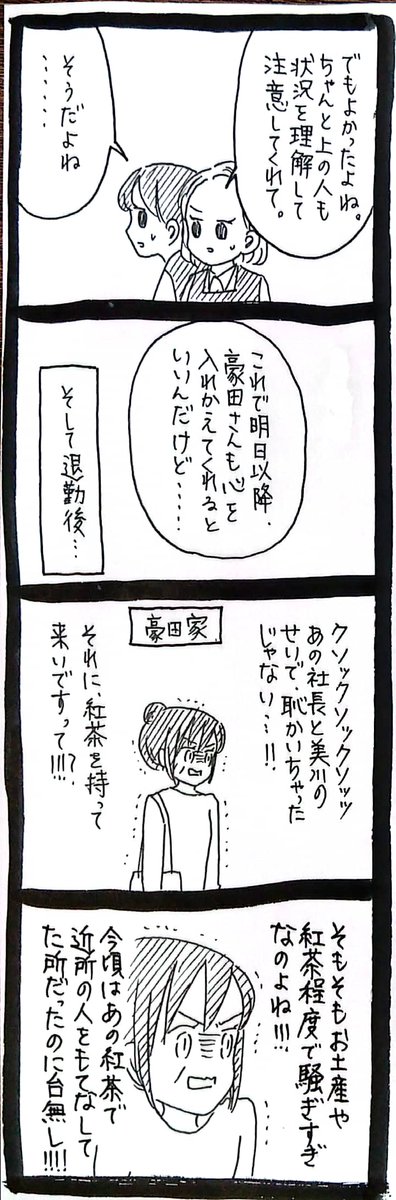 でもよかったよね。
ちゃんと上の人も
状況を理解して
注意してくれて。
そうだよね
‥‥‥
これで明日以降、
豪田さんも心を
入れかえてくれると
いいんだけど‥‥‥
そして退勤後…
豪田家
クソックソックソッッ
あの社長と美川の
せいで、恥かいちゃった
じゃない…!!
それに、紅茶を持って
来いですって!!!?
そもそもお土産や
紅茶程度で騒ぎすぎ
なのよね!!!
今頃はあの紅茶で
近所の人をもてなして
た所だったのに台無し!!!!